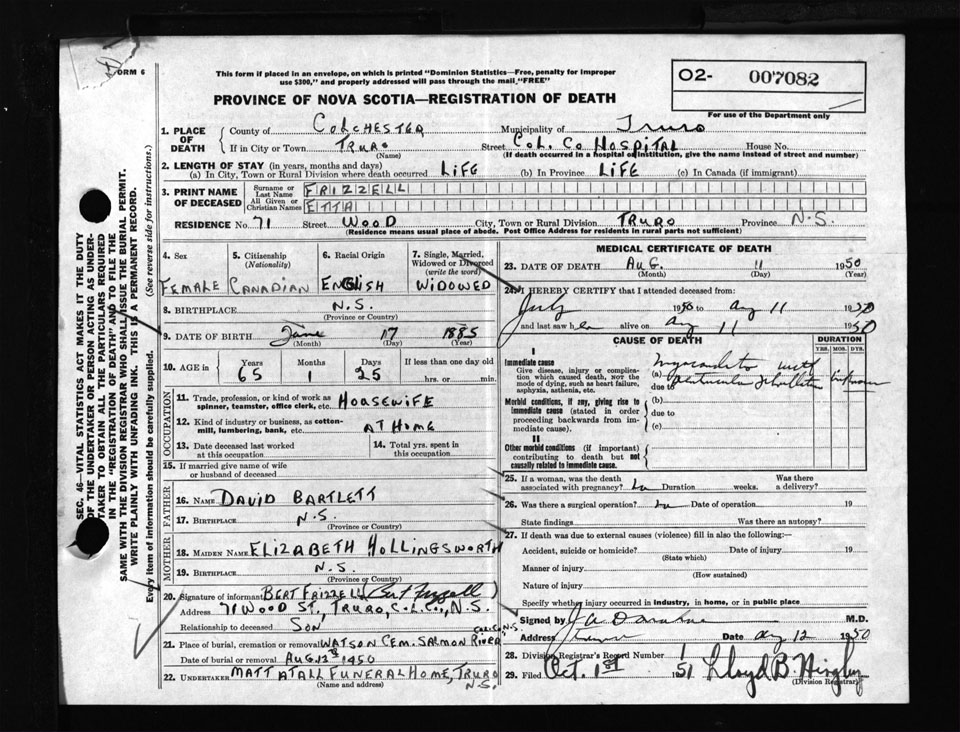 FORM 6
This form if placed in an envelope, on which is printed "Dominion Statistics—Free, penalty for improper
use $300," and properly addressed will pass through the mail "FREE"
O2- 007082
For use of the Department only
PROVINCE OF NOVA SCOTIA—REGISTRATION OF DEATH
1. PLACE OF DEATH { County of COLCHESTER Municipality of Truro
If in City or Town TRURO Street COL. CO HOSPITAL House No.
(Name) (If death occurred in a hospital or institution, give the name instead of street and number)
2. LENGTH OF STAY (in years, months and days)
(a) In City, Town or Rural Division where death occurred LIFE (b) In Province LIFE (c) In Canada (if immigrant)
3. PRINT NAME OF DECEASED { Surname or Last Name FRIZZELL
All Given or Christian Names ETTA
RESIDENCE No. 71 Street WOOD City, Town or Rural Division TRURO Province N.S.
(Residence means usual place of abode. Post Office Address for residents in rural parts not sufficient)
4. Sex 5. Citizenship (Nationality) 6. Racial Origin 7. Single, Married, Widowed or Divorced (write the word)
FEMALE CANADIAN ENGLISH WIDOWED
8. BIRTHPLACE N.S.
(Province or Country)
9. DATE OF BIRTH June 17 1885
(Month) (Day) (Year)
10. AGE in { Years Months Days If less than one day old
65 1 25 hrs. or min.
OCCUPATION
11. Trade, profession or kind of work as
spinner, teamster, office clerk, etc. HOUSEWIFE
12. Kind of industry or business, as cotton-
mill, lumbering, bank, etc. AT HOME
13. Date deceased last worked at this occupation 14. Total yrs. spent in this occupation
15. If married give name of wife
or husband of deceased
FATHER
16. NAME DAVID BARTLETT
17. BIRTHPLACE N.S.
(Province or Country)
MOTHER
18. MAIDEN NAME ELIZABETH HOLLINGSWORTH
19. BIRTHPLACE N.S.
(Province or Country)
20. Signature of informant BERT FRIZZELL (Bert Frizzell)
Address 71 WOOD ST, TRURO, COL. CO., N.S.
Relationship to deceased SON
21. Place of burial, cremation or removal WATSON CEM. SALMON RIVER COL. CO. N.S.
Date of burial or removal AUG. 13th 1950
22. UNDERTAKER MATTATALL FUNERAL HOME, TRURO N.S.
(Name and address)
MEDICAL CERTIFICATE OF DEATH
23. DATE OF DEATH Aug. 11 1950
(Month) (Day) (Year)
24. I HEREBY CERTIFY that I attended deceased from:
July 1950 to Aug 11 1950
and last saw her alive on Aug 11 1950
CAUSE OF DEATH DURATION
YRS. MOS. DYS.
I
Immediate cause
Give disease, injury or complication which caused death, NOT the mode of dying, such as heart failure, asphyxia, asthenia, etc.
(a) Myocarditis with
due to Unknown
Morbid conditions, if any, giving rise to immediate cause (stated in order proceeding backwards from immediate cause).
(b)
due to
(c)
II
Other morbid conditions (if important) contributing to death but not causally related to immediate cause.
25. If a woman, was the death associated with pregnancy? No Duration weeks. Was there a delivery?
26. Was there a surgical operation? No Date of operation 19
State findings Was there an autopsy?
27. If death was due to external causes (violence) fill in also the following:
Accident, suicide or homicide? Date of injury 19
(State which)
Manner of injury
(How sustained)
Nature of injury
Specify whether injury occurred in industry, in home, or in public place
Signed by M.D.
Address Truro Date Aug 12 1950
28. Division Registrar's Record Number 1
29. Filed Oct. 1st 1951 Lloyd B.
(Division Registrar)
SEC. 46—VITAL STATISTICS ACT MAKES IT THE DUTY
OF THE UNDERTAKER OR PERSON ACTING AS UNDER-
TAKER TO OBTAIN ALL THE PARTICULARS REQUIRED
IN THE "REGISTRATION OF DEATH" AND TO FILE THE
SAME WITH THE DIVISION REGISTRAR WHO SHALL ISSUE THE BURIAL PERMIT.
WRITE PLAINLY WITH UNFADING INK. THIS IS A PERMANENT RECORD.
Every item of information should be carefully supplied. (See reverse side for instructions.)